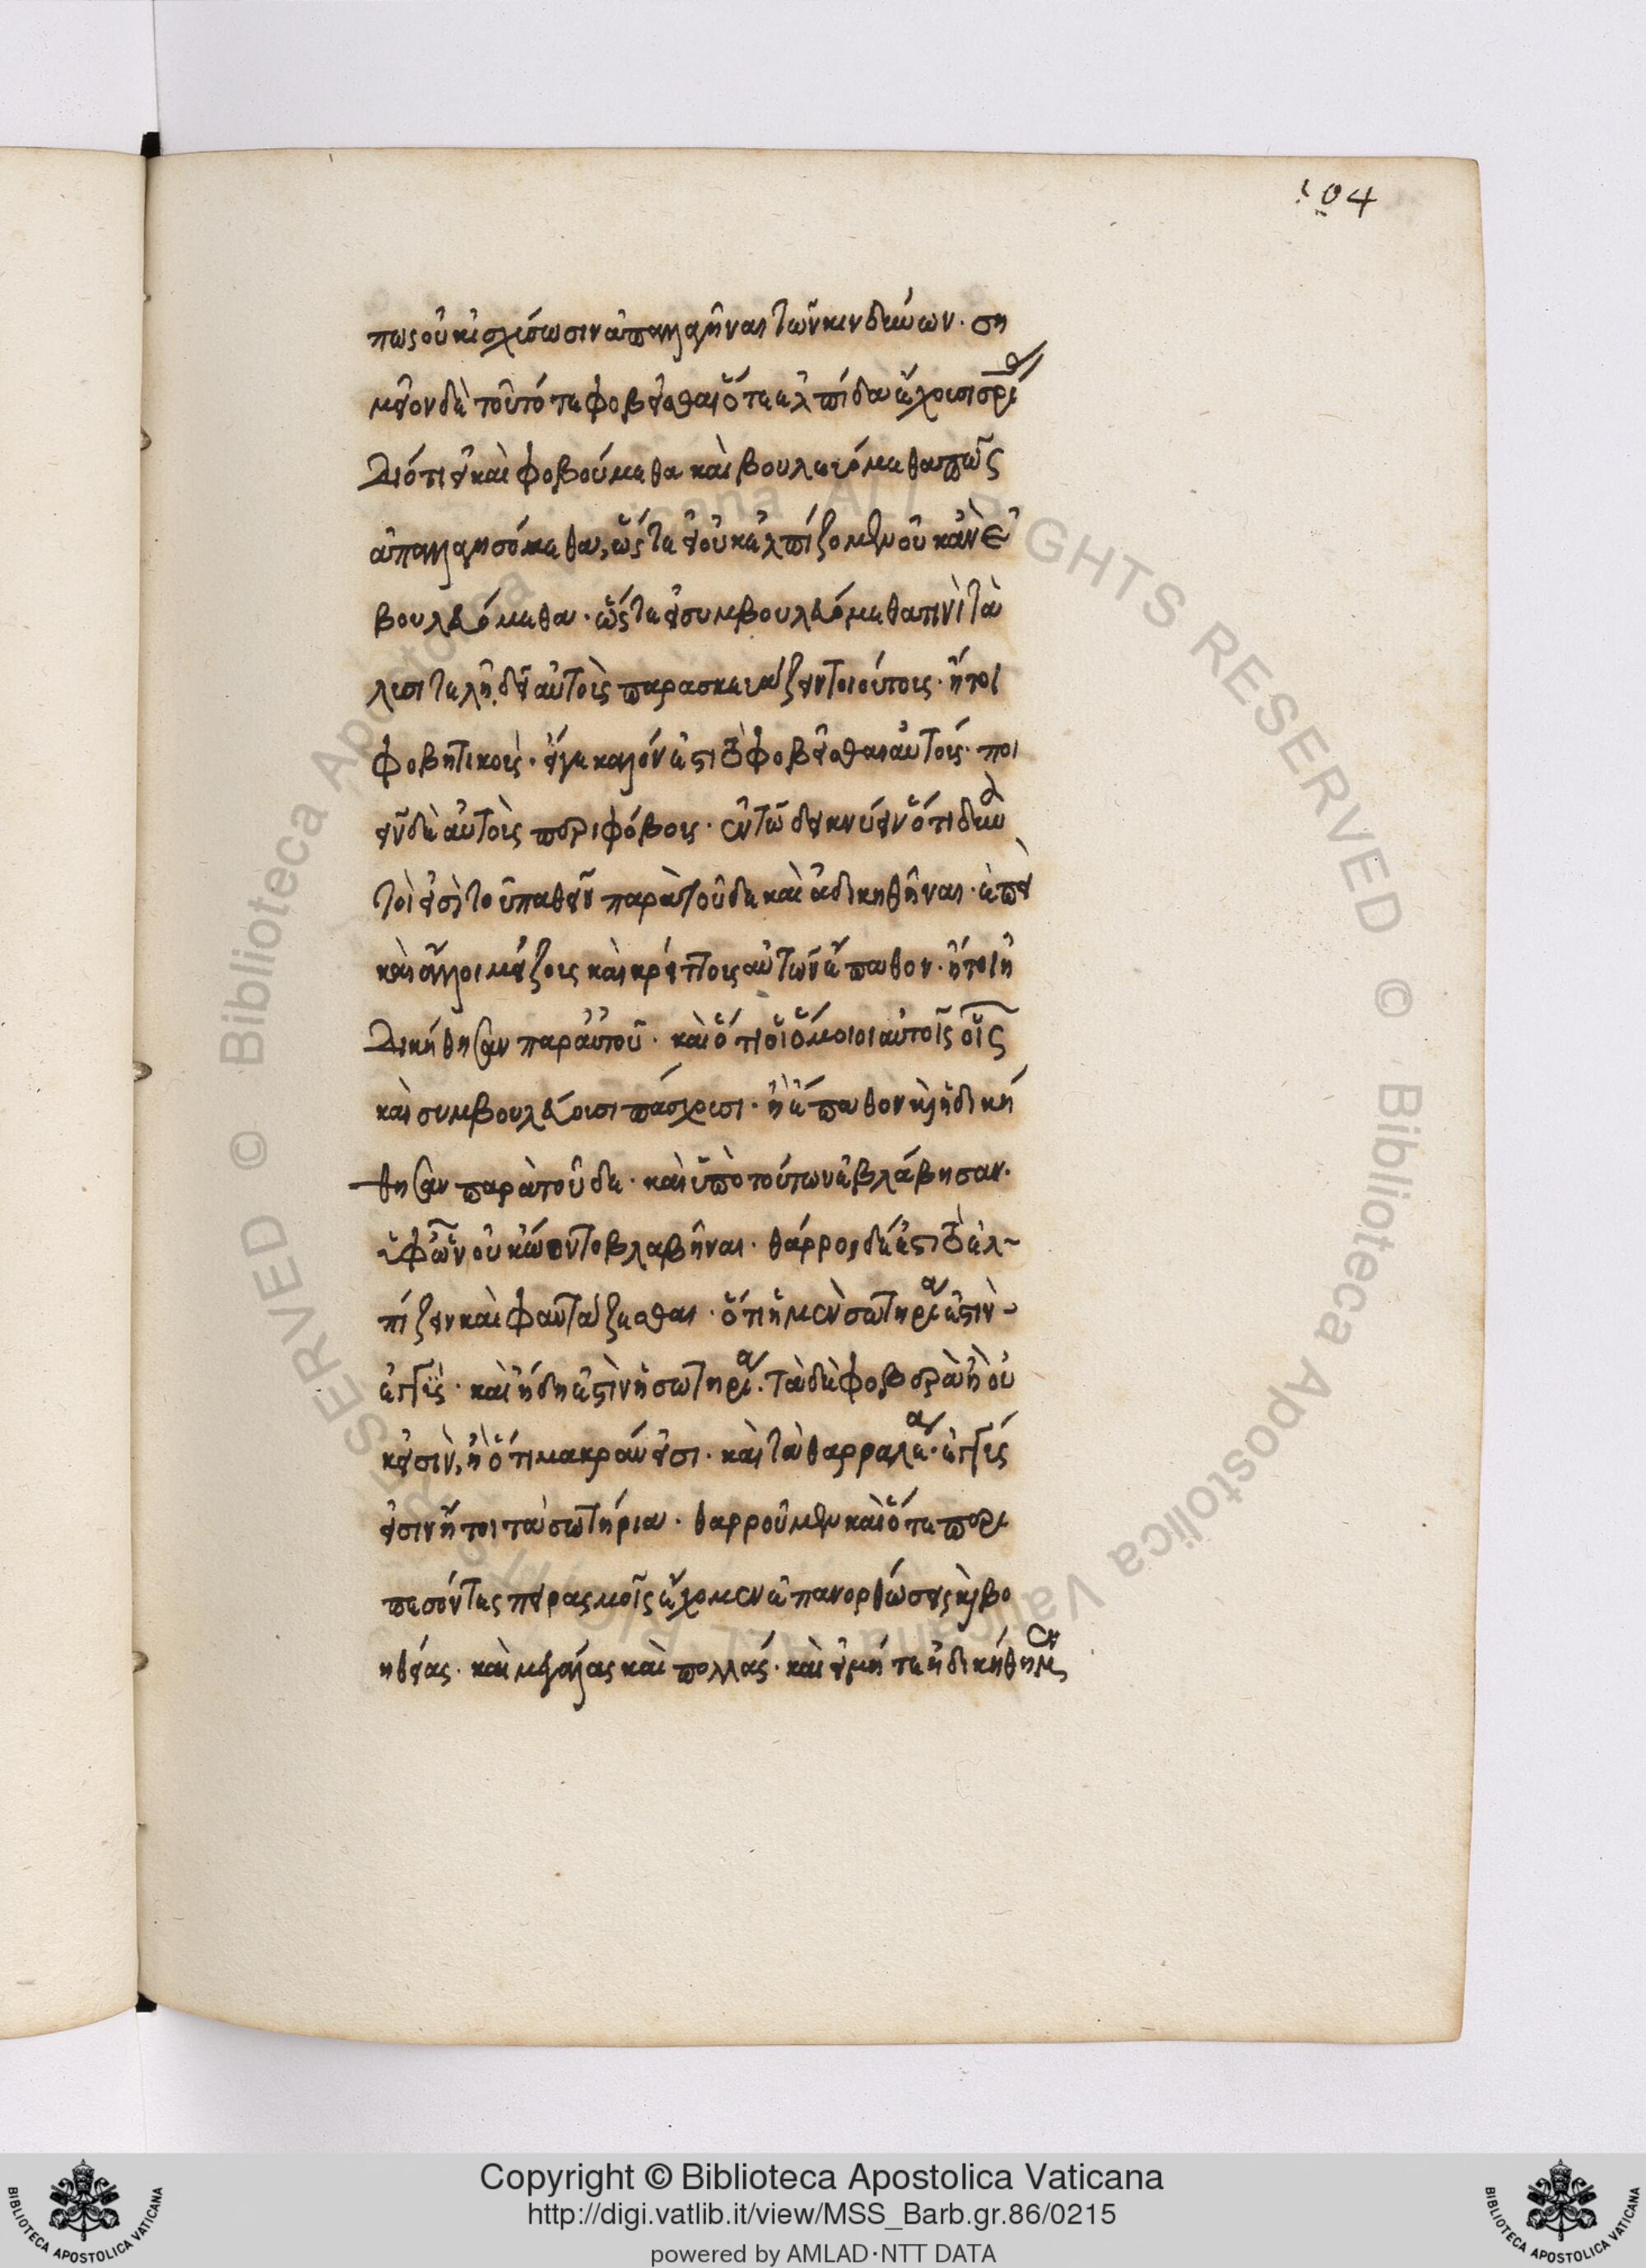 104
πως οὐκ ἰσχύσωσιν ἀπαλλαγῆναι τῶν κινδύνων. ση
μεῖον δὲ τοῦ τότε φοβεῖσθαι ὅτε ἐλπίδα ἔχουσι σρίας
διότι εἰ καὶ φοβούμεθα καὶ βουλευόμεθα πῶς
ἀπαλλαγησόμεθα, ὥστε εἰ οὐκ ἐλπίζομεν οὐκ ἂν ἐ
βουλευόμεθα. ὥστε εἰ συμβουλευόμεθα τινὶ τὰ
λυσιτελῆ, δεῖ αὐτοὺς παρασκευάζειν τοιούτους. ἤτοι
φοβητικούς. εἴγε καλόν ἐστι τὸ φοβεῖσθαι αὐτούς. ποι
εῖν δὲ αὐτοὺς περιφόβους. ἐν τῶ δεικνύειν ὅτι δυνα
τοί εἰσὶ τοῦ παθεῖν παρὰ τοῦδε καὶ ἀδικηθῆναι. ἐπεὶ
καὶ ἄλλοι μείζους καὶ κρείττους αὐτῶν ἔπαθον. ἤτοι ἠ
δικήθησαν παρ' αὐτοῦ. καὶ ὅτι οἱ ὅμοιοι αὐτοῖς οἷς
καὶ συμβουλεύουσι πάσχουσι. ἢ ἔπαθον καὶ ἠδική
θησαν παρὰ τοῦδε. καὶ ὑπὸ τούτων ἐβλάβησαν.
ὑφ' ὧν οὐκ ὤοντο βλαβῆναι. θάρρος δέ ἐστι τὸ ἐλ-
πίζειν καὶ φαντάζεσθαι. ὅτι ἡ μὲν σωτηρία ἐστὶν
ἐγγύς. καὶ ἤδη ἐστὶν ἡ σωτηρία. τὰ δὲ φοβερὰ ἢ οὐ
κ εἰσὶν, ἢ ὅτι μακράν εἰσι. καὶ τὰ θαρραλέα. ἐγγύς
εἰσιν ἤτοι τὰ σωτήρια. θαρροῦμεν καὶ ὅτε περι
πεσόντες πειρασμοῖς ἔχομεν ἐπανορθώσεις καὶ βο
ηθείας. καὶ μεγάλας καὶ πολλάς. καὶ εἰ μήτε ἠδικήθημεν
Copyright © Biblioteca Apostolica Vaticana
http://digi.vatlib.it/view/MSS_Barb.gr.86/0215
powered by AMLAD·NTT DATA